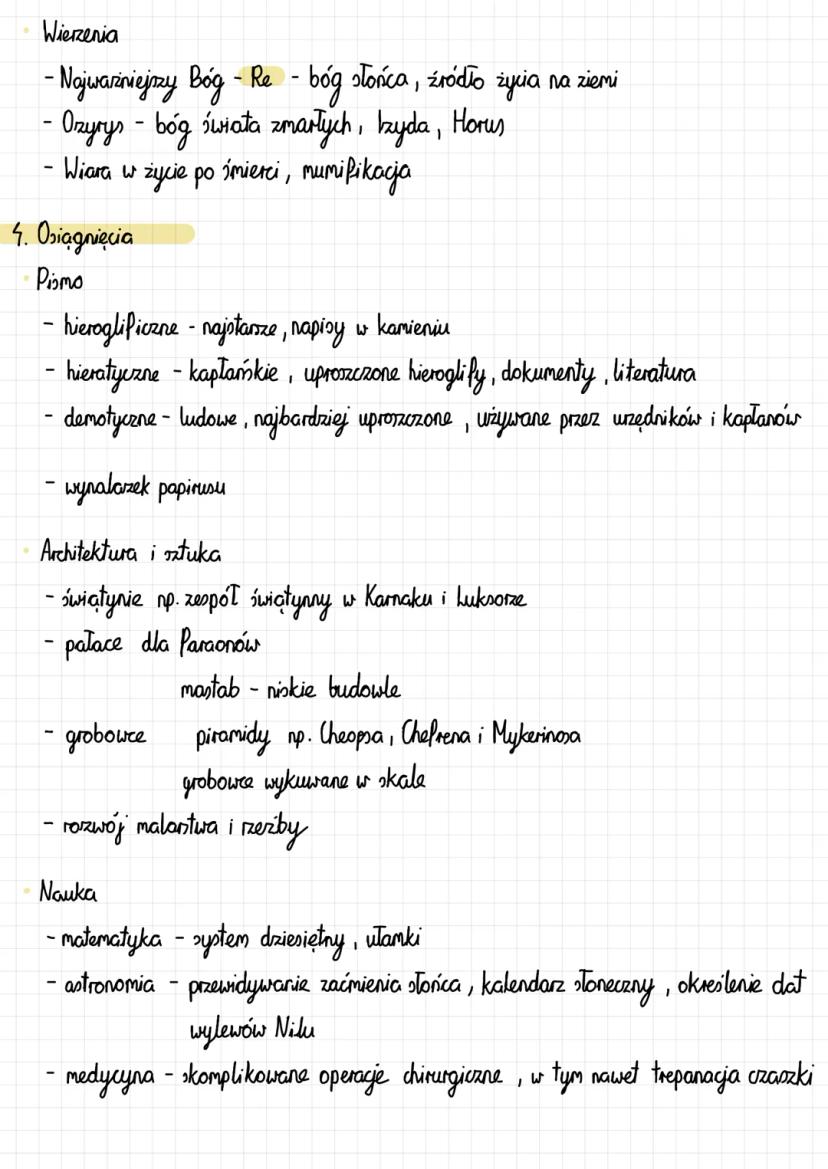 Wierzenia
- Najważniejszy Bóg - Re - bóg słońca, źródło życia na ziemi
- Ozyrys - bóg świata zmarłych, Izyda, Horus
- Wiara w życie po śmierci, mumifikacja
4. Osiągnięcia
Pismo
- hieroglificzne - najstarsze, napisy w kamieniu
- hieratyczne - kapłańskie, uproszczone hieroglify, dokumenty, literatura
- demotyczne - ludowe, najbardziej uproszczone, używane przez urzędników i kapłanów
- wynalazek papirusu
Architektura i sztuka
- świątynie np. zespół świątynny w Karnaku i Luksorze
- pałace dla Faraonów
mastab - niskie budowle
- grobowce piramidy np. Cheopsa, Chefrena i Mykerinosa
grobowce wykuwane w skale
- rozwój malarstwa i rzeźby
Nauka
- matematyka - system dziesiętny, ułamki
- astronomia - przewidywanie zaćmienia słońca, kalendarz słoneczny, określenie dat
wylewów Nilu
- medycyna - skomplikowane operacje chirurgiczne, w tym nawet trepanacja czaszki